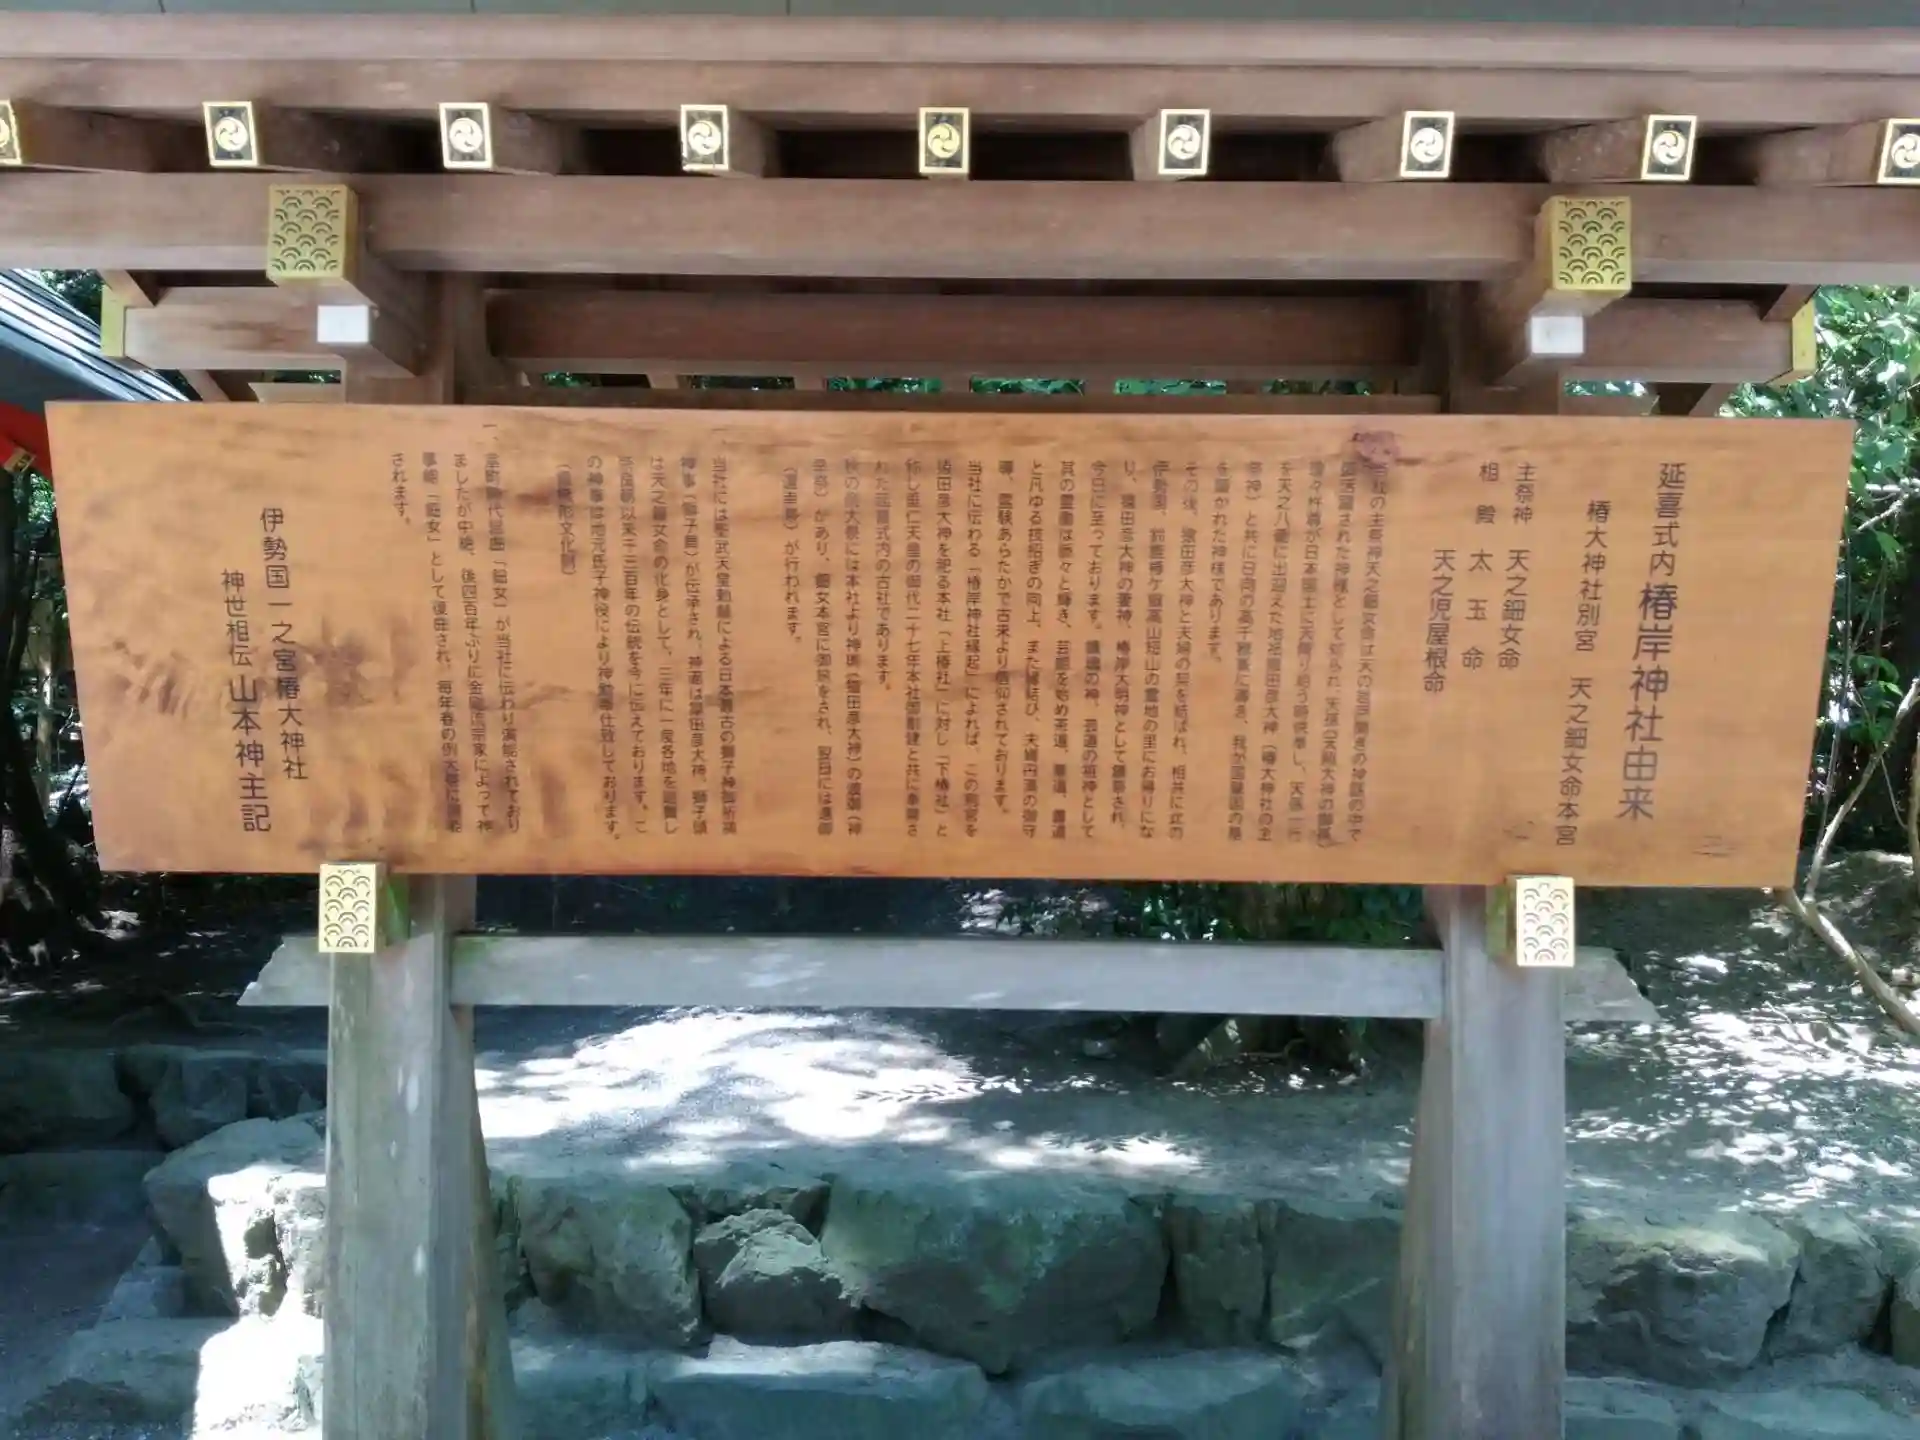 延喜式内 椿岸神社由来
椿大神社別宮 天之鈿女命本宮
主祭神 天之鈿女命
相殿 太玉命
天之児屋根命
当社の主祭神天之鈿女命は天の岩戸開きの神話の中で
御活躍された神様として知られ、天孫(天照大神の御孫)
瓊々杵尊が日本国土に天降り給う時供奉し、天孫一行
を天之八衢に出迎えた地祇猿田彦大神(椿大神社の主
祭神)と共に日向の高千穂峯に導き、我が国肇国の基
を築かれた神様であります。
その後、猿田彦大神と夫婦の契を結ばれ、相共に此の
伊勢国、鈴鹿椿ケ嶽高山短山の霊地の里にお帰りにな
り、猿田彦大神の妻神、椿岸大明神として鎮祭され、
今日に至っております。鎮魂の神、芸道の祖神として
其の霊徳は愈々と輝き、芸能を始め茶道、華道、書道
と凡ゆる技招ぎの向上、また縁結び、夫婦円満の御守
導、霊験あらたかで古来より信仰されております。
当社に伝わる「椿岸神社縁起」によれば、この別宮を
猿田彦大神を祀る本社「上椿社」に対し「下椿社」と
称し垂仁天皇の御代二十七年本社御創建と共に奉齋さ
れた延喜式内の古社であります。
秋の例大祭には本社より神璽(猿田彦大神)の渡御(神
幸祭)があり、鈿女本宮に御泊をされ、翌日には還御
(還幸祭)が行われます。
当社には聖武天皇勅願による日本最古の獅子神御祈祷
神事(獅子舞)が伝承され、神面は猿田彦大神、獅子頭
は天之鈿女命の化身として、三年に一度各地を巡舞し
奈良朝以来千三百年の伝統を今に伝えております。こ
の神事は地元氏子神役により神勤奉仕致しております。
(無形文化財)
一、室町時代謡曲「鈿女」が当社に伝わり演能されており
ましたが中絶、後四百年ぶりに金剛流宗家によって神
事能「鈿女」として復曲され、毎年春の例大祭に演能
されます。
伊勢国一之宮椿大神社
神世相伝 山本神主記